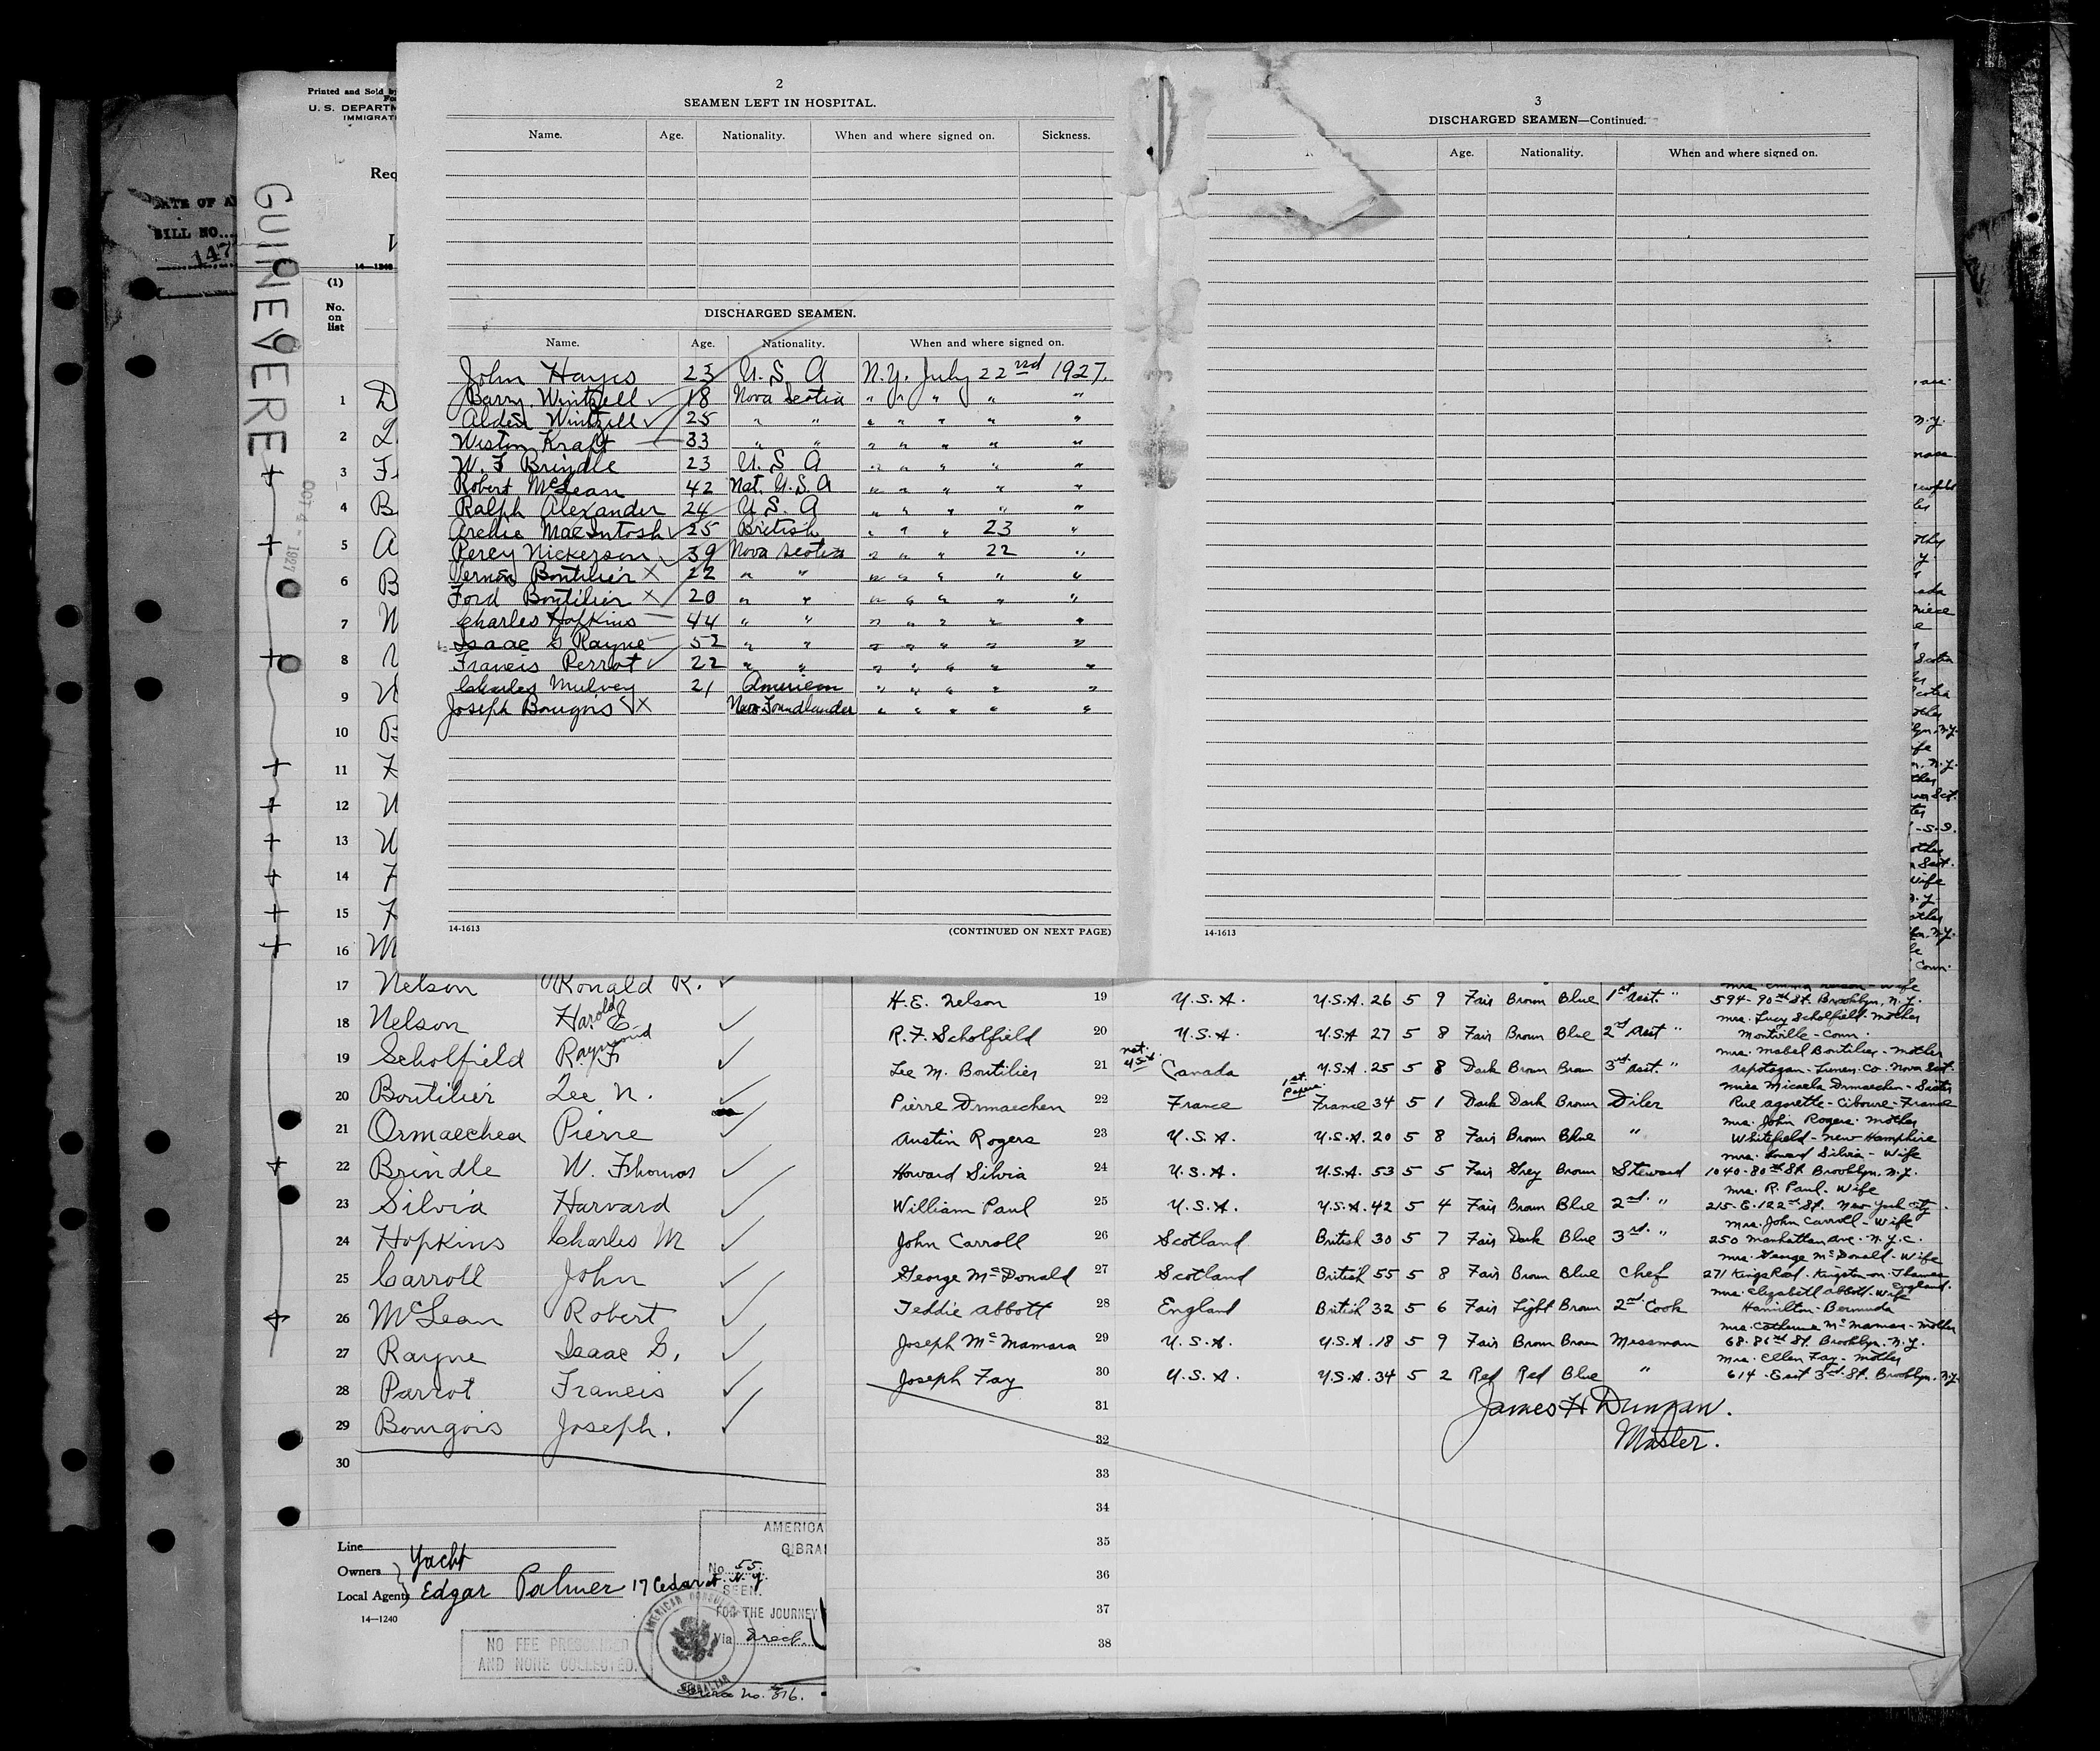 Printed and Sold by
U. S. DEPARTM
IMMIGRATI
Req
DATE OF A
BILL NO.
147
GUINEVERE
OCT 4 - 1927
14—1240
(1)
No.
on
list
2
SEAMEN LEFT IN HOSPITAL.
Name. Age. Nationality. When and where signed on. Sickness.
DISCHARGED SEAMEN.
Name. Age. Nationality. When and where signed on.
John Hayes 23 U. S. A N.Y. July 22nd 1927.
Barry Wintzell ✓ 18 Nova Scotia " " " " "
Alden Wintzell ✓ 25 " " " " " " "
Weston Kraft 33 " " " " " " "
W. F Brindle 23 U. S. A " " " " "
Robert McLean 42 Nat. U.S.A " " " " "
Ralph Alexander 24 U. S. A " " " " "
Archie MacIntosh ✓ 25 British " " " 23 "
Percy Nickerson ✓ 39 Nova Scotia " " " 22 "
Vernon Boutilier X 22 " " " " " " "
Ford Boutilier X 20 " " " " " " "
Charles Hopkins 44 " " " " " " "
Isaac G Rayne 52 " " " " " " "
Francis Perrot ✓ 22 " " " " " " "
Charles Mulvey 21 American " " " " "
Joseph Bougois ✓X Newfoundlander " " " " "
14-1613 (CONTINUED ON NEXT PAGE)
3
DISCHARGED SEAMEN—Continued.
Age. Nationality. When and where signed on.
14-1613
1 D
2
3 F
4 B
5 A
6 B
7
8
9
10 B
11
12
13
14
15
16 M
17 Nelson Ronald R. ✓
18 Nelson Harold E. ✓
19 Scholfield Raymond F ✓
20 Boutilier Lee N. ✓
21 Ormaechea Pierre ✓
22 Brindle W. Fhomas ✓
23 Silvia Harvard ✓
24 Hopkins Charles M ✓
25 Carroll John ✓
26 McLean Robert ✓
27 Rayne Isaac G. ✓
28 Parrot Francis ✓
29 Bourgois Joseph. ✓
30
Line
Owners Yacht
Local Agents Edgar Palmer 17 Cedar st N. Y
14—1240
NO FEE PRESCRIBED
AND NONE COLLECTED.
AMERICA
GIBRA
No. 55.
SEEN.
FOR THE JOURNEY
Via Direct.
AMERICAN CONSULATE
GIBRALTAR
Service No. 316.
H.E. Nelson 19 U.S.A. U.S.A. 26 5 9 Fair Brown Blue 1st Asst. " 594-90th St. Brooklyn, N.Y.
Mrs. Lucy Scholfield-Mother
R.F. Scholfield 20 U.S.A. U.S.A 27 5 8 Fair Brown Blue 2nd Asst " Montville-Conn.
Mrs. Mabel Boutilier-Mother
Lee M. Boutilier 21 nat. U.S.A. Canada U.S.A. 25 5 8 Dark Brown Brown 3rd Asst. " Aspotogan-Lunen. Co. Nova Scot.
Miss Micaela Ormaechen-Sister
Pierre Ormaechen 22 France 1st Papers. France 34 5 1 Dark Dark Brown Oiler Rue Agorette-Ciboure-France
Mrs. John Rogers-Mother
Austin Rogers 23 U.S.A. U.S.A. 20 5 8 Fair Brown Blue " Whitefield-New Hampshire
Mrs. Howard Silvia-Wife
Howard Silvia 24 U.S.A. U.S.A. 53 5 5 Fair Grey Brown Steward 1040-80th St. Brooklyn, N.Y.
Mrs. R. Paul-Wife
William Paul 25 U.S.A. U.S.A. 42 5 4 Fair Brown Blue 2nd " 215-E-122nd St. New York City.
Mrs. John Carroll-Wife
John Carroll 26 Scotland British 30 5 7 Fair Dark Blue 3rd " 250 Manhattan Ave. N.Y.C.
Mrs. George McDonald-Wife
George McDonald 27 Scotland British 55 5 8 Fair Brown Blue Chef 271 Kings Road. Kingston-on-Thames England.
Mrs. Elizabeth Abbott-Wife
Teddie Abbott 28 England British 32 5 6 Fair Light Brown 2nd Cook Hamilton-Bermuda
Mrs. Catherine McNamara-Mother
Joseph McMamara 29 U.S.A. U.S.A. 18 5 9 Fair Brown Brown Messman 68-86th St. Brooklyn, N.Y.
Mrs. Ellen Fay-Mother
Joseph Fay 30 U.S.A. U.S.A. 34 5 2 Red Red Blue " 614-East 3rd St. Brooklyn, N.Y.
31 James H Dungan.
32 Master.
33
34
35
36
37
38